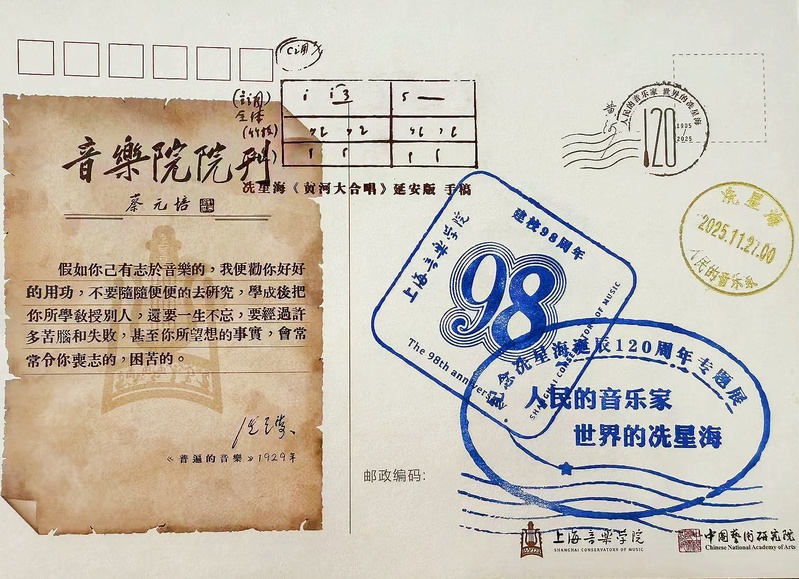 C调
(主调)
全体
i i3
5 —
冼星海《黄河大合唱》延安版 手稿
音樂院院刊
蔡元培
假如你己有志於音樂的，我便勸你好好
的用功，不要隨隨便便的去研究，學成後把
你所學敎授別人，還要一生不忘，要經過許
多苦腦和失敗，甚至你所望想的事實，會常
常令你喪志的，困苦的。
《普遍的音樂》1929年
人民的音乐家 世界的冼星海
黄河
120
1905
2025
冼星海
2025.11.27.00
人民的音乐家
建校98周年
上海音乐学院
98
The 98th anniversary
SHANGHAI CONSERVATORY OF MUSIC
纪念冼星海诞辰120周年专题展
人民的音乐家
世界的冼星海
邮政编码:
上海音乐学院
SHANGHAI CONSERVATORY OF MUSIC
中国艺术研究院
Chinese National Academy of Arts